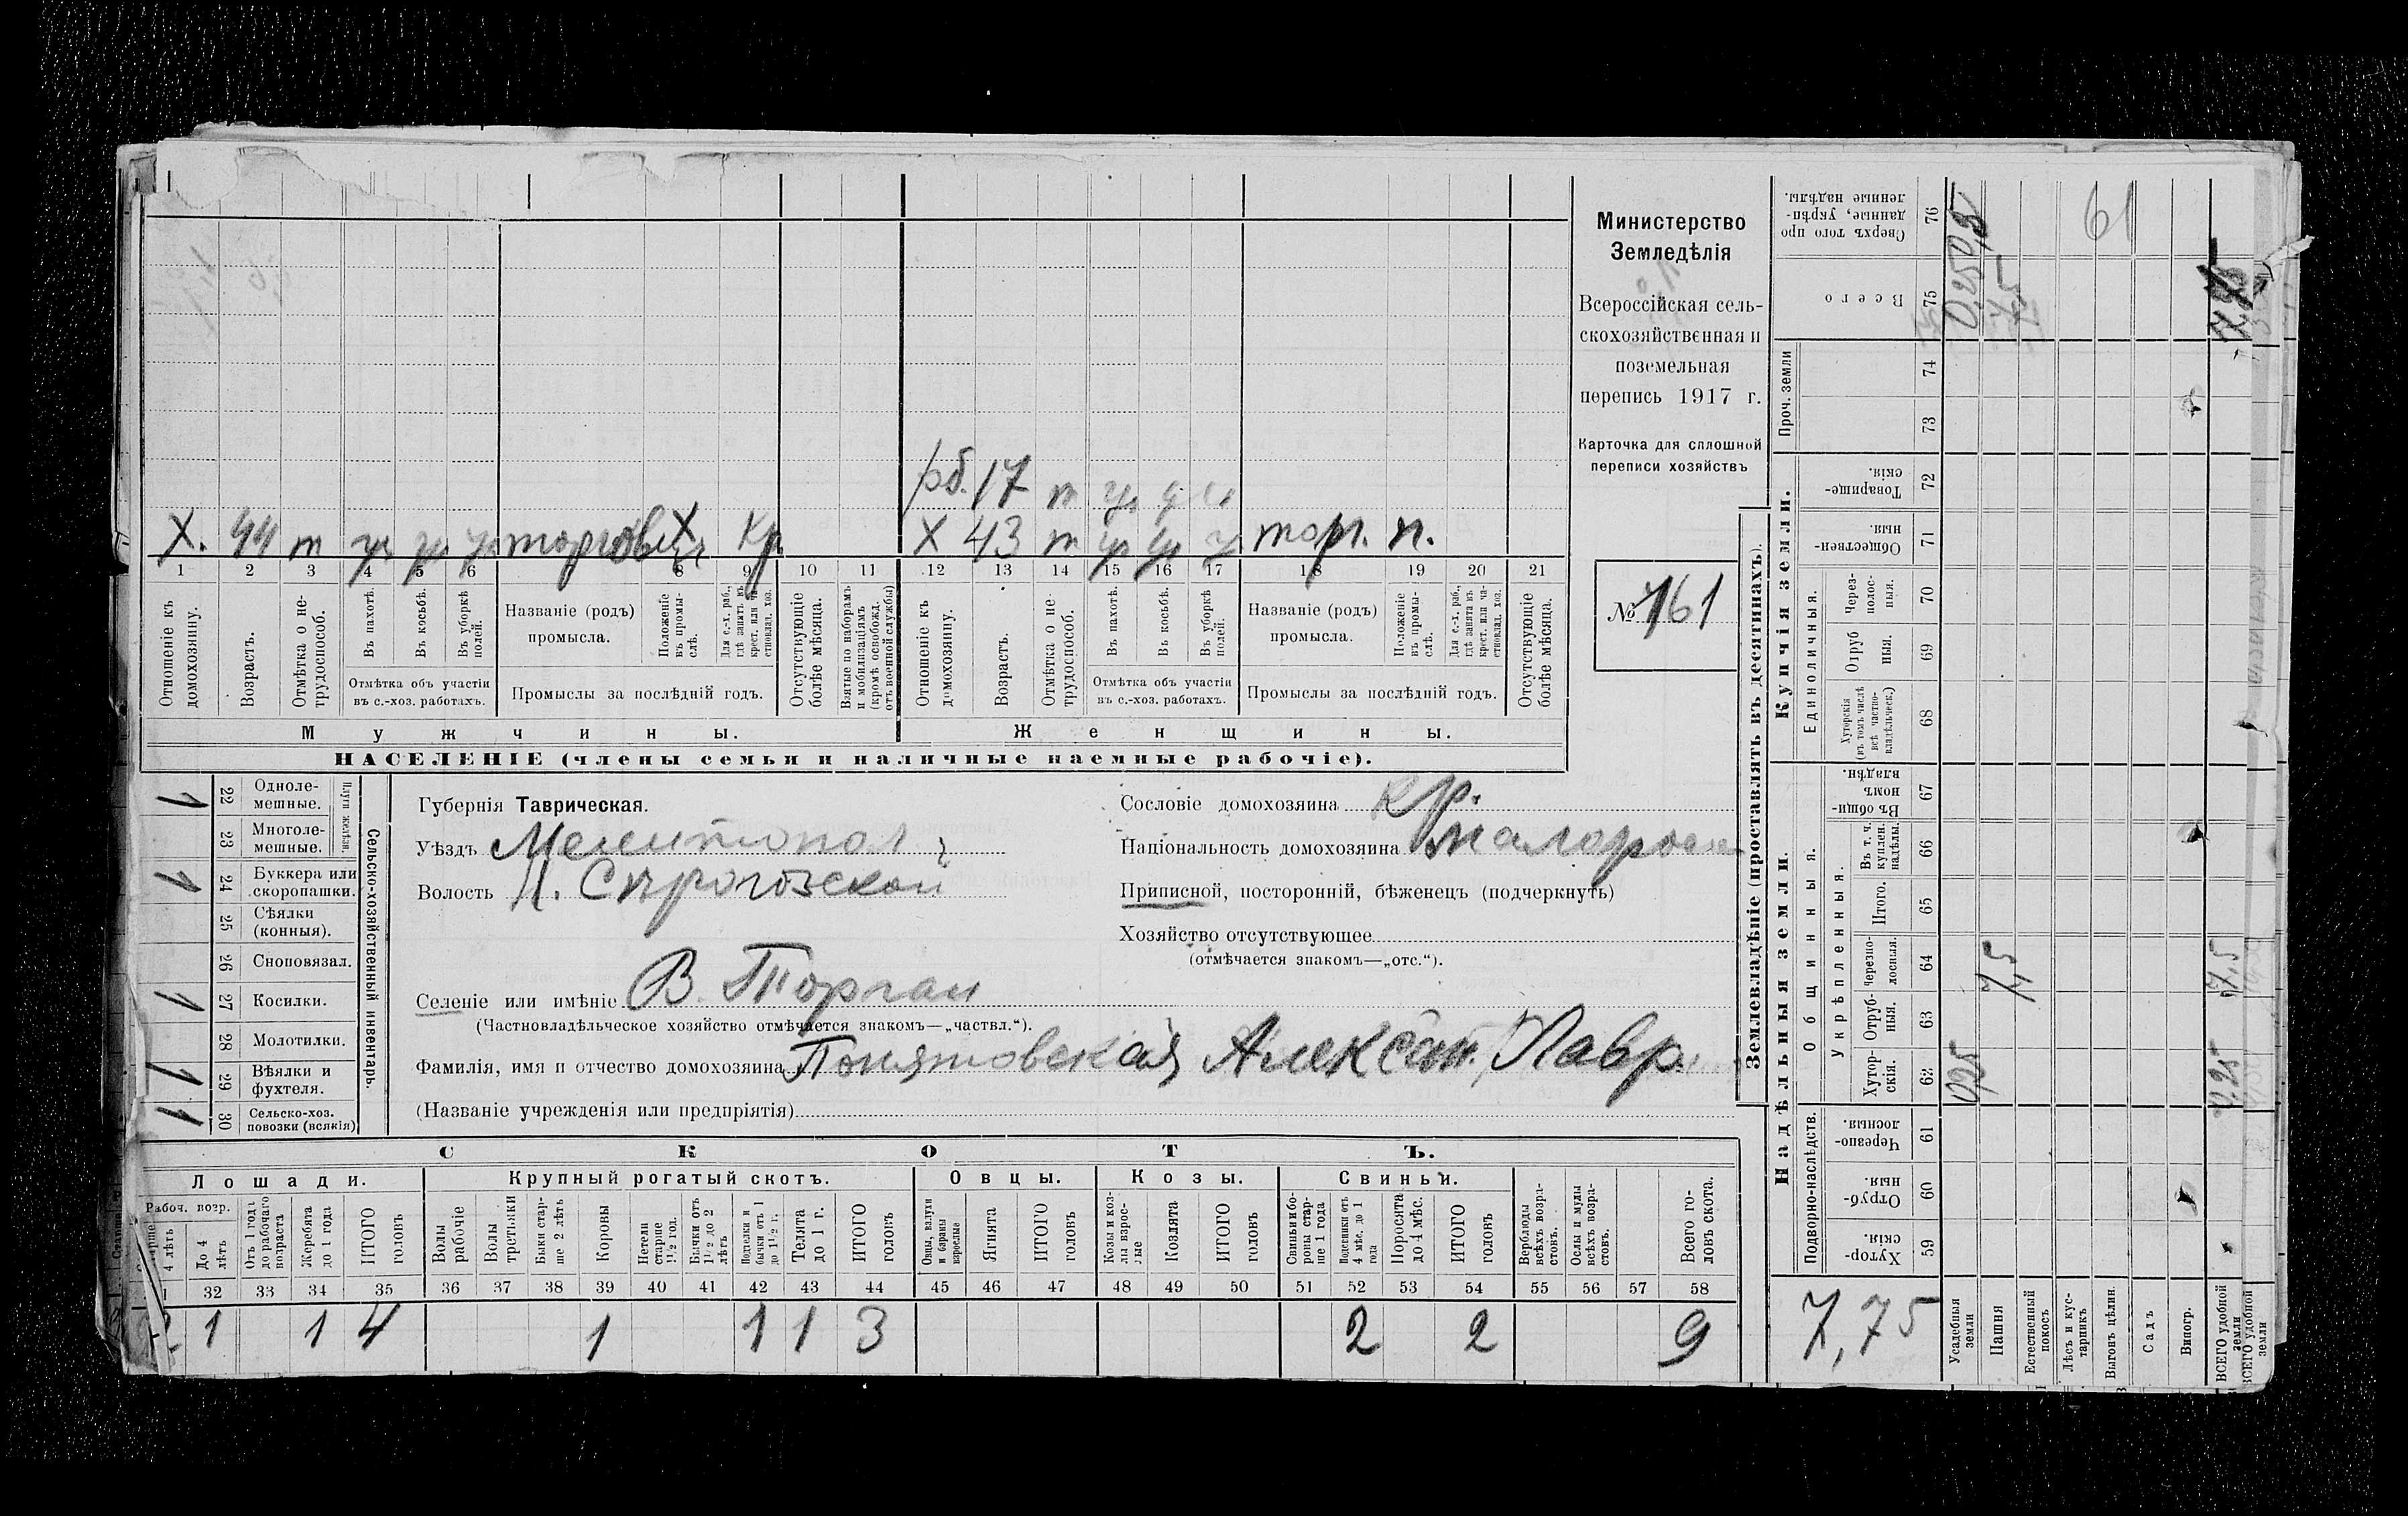 Министерство
Земледѣлія
Всероссійская сель-
скохозяйственная и
поземельная
перепись 1917 г.
Карточка для сплошной
переписи хозяйствъ
№ 161
рб. 17 т
Х. 44 т торговецъ Х кр.
Х 43 т торг. п.
1 2 3 4 5 6 8 9 10 11 12 13 14 15 16 17 18 19 20 21
Отношеніе къ домохозяину.
Возрастъ.
Отмѣтка о не-трудоспособ.
Въ пахотѣ.
Въ косьбѣ.
Въ уборкѣ полей.
Отмѣтка объ участіи
въ с.-хоз. работахъ.
Названіе (родъ)
промысла.
Положеніе въ промы-слѣ.
Для с.-х. раб., гдѣ занятъ въ крест. или ча-стновлад. хоз.
Промыслы за послѣдній годъ.
Отсутствующіе болѣе мѣсяца.
Взятые по наборамъ и мобилизаціямъ (кромѣ освобожд. отъ военной службы)
Отношеніе къ домохозяину.
Возрастъ.
Отмѣтка о не-трудоспособ.
Въ пахотѣ.
Въ косьбѣ.
Въ уборкѣ полей.
Отмѣтка объ участіи
въ с.-хоз. работахъ.
Названіе (родъ)
промысла.
Положеніе въ промы-слѣ.
Для с.-х. раб., гдѣ занята въ крест. или ча-стновлад. хоз.
Промыслы за послѣдній годъ.
Отсутствующіе болѣе мѣсяца.
Мужчины. Женщины.
НАСЕЛЕНІЕ (члены семьи и наличные наемные рабочіе).
Сельско-хозяйственный инвентарь.
Плуги желѣзн.
1 22 Одноле-мешные.
23 Многоле-мешные.
1 24 Буккера или скоропашки.
25 Сѣялки (конныя).
26 Сноповязал.
1 27 Косилки.
28 Молотилки.
1 29 Вѣялки и фухтеля.
1 30 Сельско-хоз. повозки (всякія)
Губернія Таврическая.
Уѣздъ Мелитопол
Волость Н. Сѣрогозской
Селеніе или имѣніе В. Торгаи
(Частновладѣльческое хозяйство отмѣчается знакомъ—„частвл.“).
Фамилія, имя и отчество домохозяина Понятовская Алексан. Лавр.
(Названіе учрежденія или предпріятія)
Сословіе домохозяина кр.
Національность домохозяина малоросс
Приписной, посторонній, бѣженецъ (подчеркнуть)
Хозяйство отсутствующее
(отмѣчается знакомъ—„отс.“).
СКОТЪ.
Лошади. Крупный рогатый скотъ. Овцы. Козы. Свиньи.
Рабоч. возр.
4 лѣтъ
До 4 лѣтъ
Отъ 1 года до рабочаго возраста
Жеребята до 1 года
ИТОГО головъ
Волы рабочіе
Волы третьяки
Быки стар-ше 2 лѣтъ
Коровы
Нетели старше 1½ год.
Бычки отъ 1½ до 2 лѣтъ
Подтелки и бычки отъ 1 до 1½ г.
Телята до 1 г.
ИТОГО головъ
Овцы, валухи и бараны взрослые
Ягнята
ИТОГО головъ
Козы и коз-лы взрос-лые
Козлята
ИТОГО головъ
Свиньи и бо-ровы стар-ше 1 года
Подсвинки отъ 4 мѣс. до 1 года
Поросята до 4 мѣс.
ИТОГО головъ
Верблюды всѣхъ возра-стовъ.
Ослы и мулы всѣхъ возра-стовъ.
Всего го-ловъ скота.
32 33 34 35 36 37 38 39 40 41 42 43 44 45 46 47 48 49 50 51 52 53 54 55 56 57 58
1 1 4 1 1 1 3 2 2 9
Землевладѣніе (проставлять въ десятинахъ).
Надѣльныя земли. Купчія земли.
Подворно-наслѣдств.
Общинныя.
Укрѣпленныя.
Единоличныя.
Проч. земли
59 Хутор-скія.
60 Отруб-ныя.
61 Черезпо-лосныя.
62 Хутор-скія.
63 Отруб-ныя.
64 Черезпо-лосныя.
65 Итого.
66 Въ т. ч. куплен. надѣлы.
67 Въ общи-номъ владѣн.
68 Хуторскія (въ томъ числѣ всѣ частно-владѣльческ.)
69 Отруб ныя.
70 Через-полос-ныя.
71 Обществен-ныя.
72 Товарище-скія.
73
74
75 Всего
76 Сверхъ того про данные, укрѣп-ленные надѣлы.
7,75
Усадебныя земли 0,25 0,25
Пашня 7,5 7,5
Естественный покосъ
Лѣсъ и кус-тарникъ
Выгонъ цѣлин. 61
Садъ
Виногр.
ВСЕГО удобной земли 7,5
ВСЕГО удобной земли